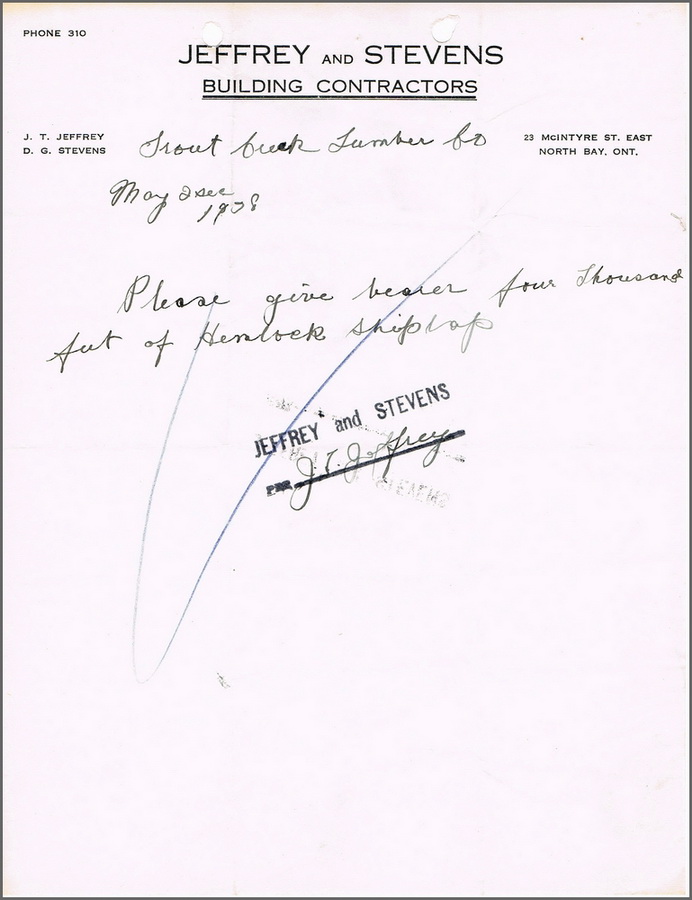 PHONE 310
JEFFREY AND STEVENS
BUILDING CONTRACTORS
J. T. JEFFREY
D. G. STEVENS
23 McINTYRE ST. EAST
NORTH BAY, ONT.
Trout Creek Lumber Co
May 2
1938
Please give bearer four Thousand
feet of Hemlock shiplap
JEFFREY and STEVENS
PER J. T. Jeffrey